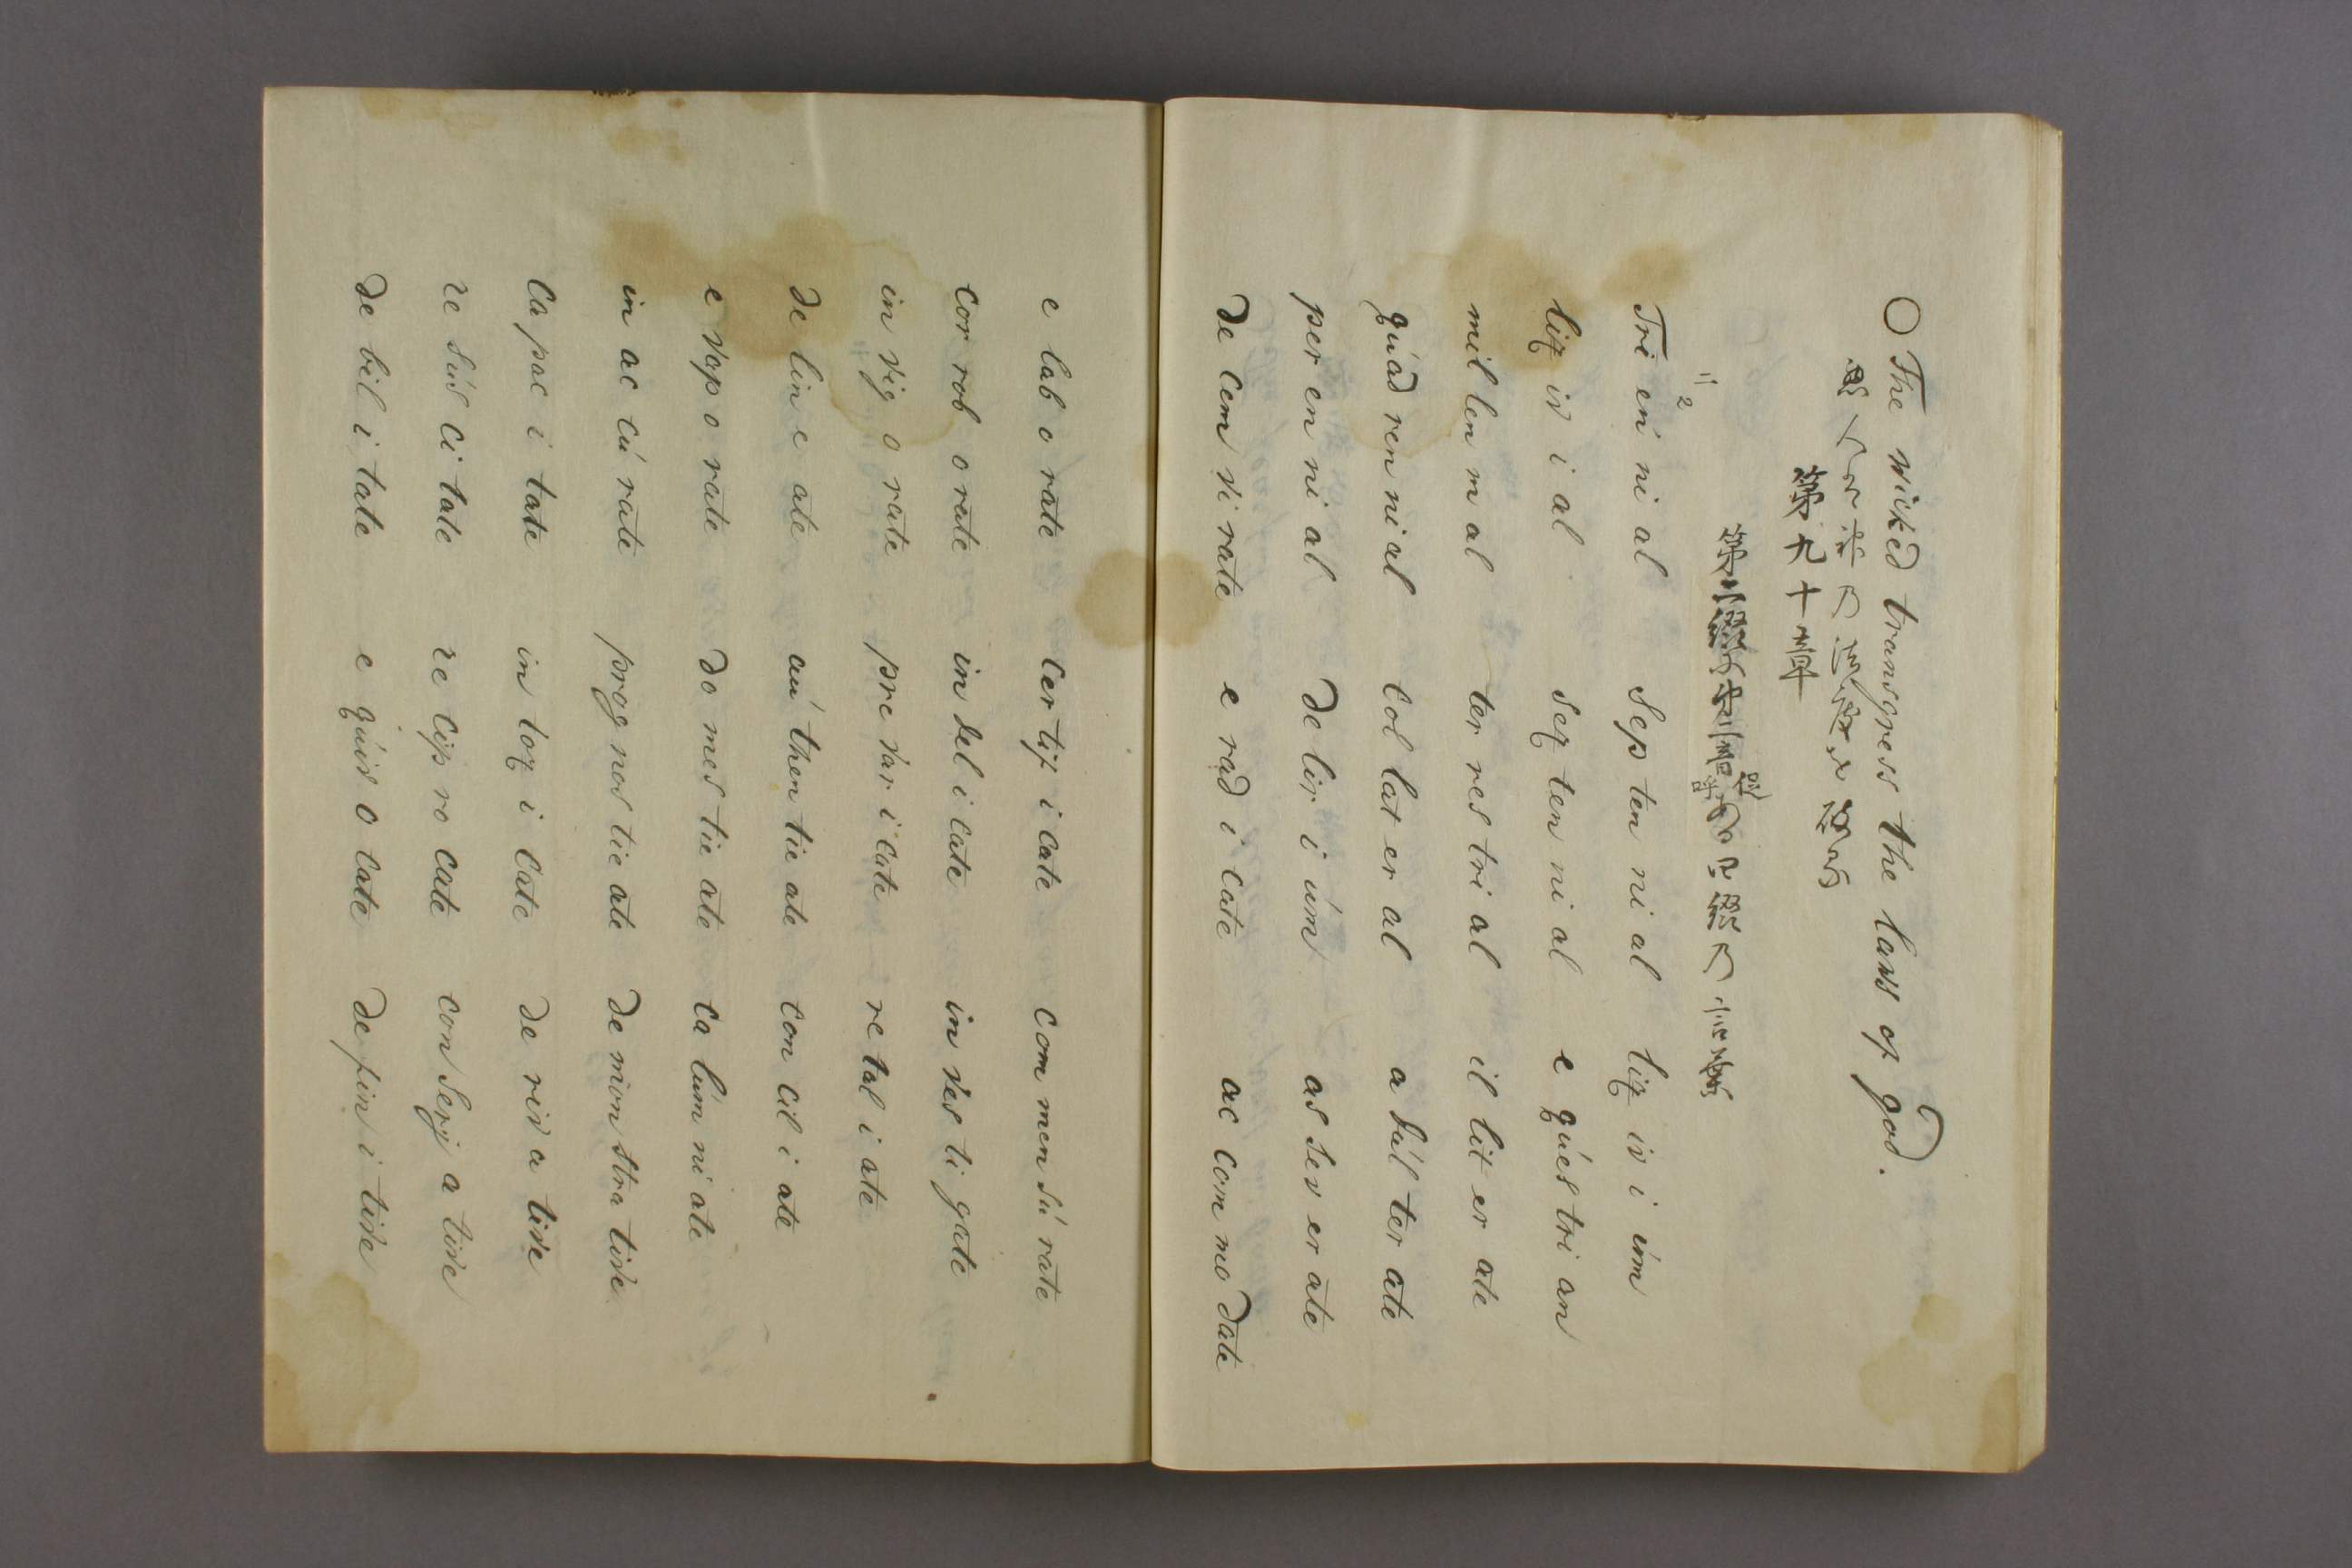 ○ The wicked transgress the laws of god.
第九十章
Tri en ni al Sep ten ni al lix iv i úm
lix iv i al Sex ten ni al e qúes tri an
mil len m al ter res tri al il lit er ate
qúad ren ni al col lat er al a dúl ter ate
per en ni al de lir i úm as sev er ate
de cem vi rate e rad i cate ac com mo date
e lab o rate cer tif i cate com men sú rate
cor rob o rate in del i cate in ves ti gate
in vig o rate pre var i cate re tal i ate
de lin e ate aú then tic ate con cil i ate
e vap o rate do mes tic ate ca lúm ni ate
in ac cú rate prog nos tic ate de mon stra tive
ca pac i tate in tox i cate de riv a tive
re sús ci tate re cip ro cate con serv a tive
de bil i tate e qúiv o cate de fin i tive